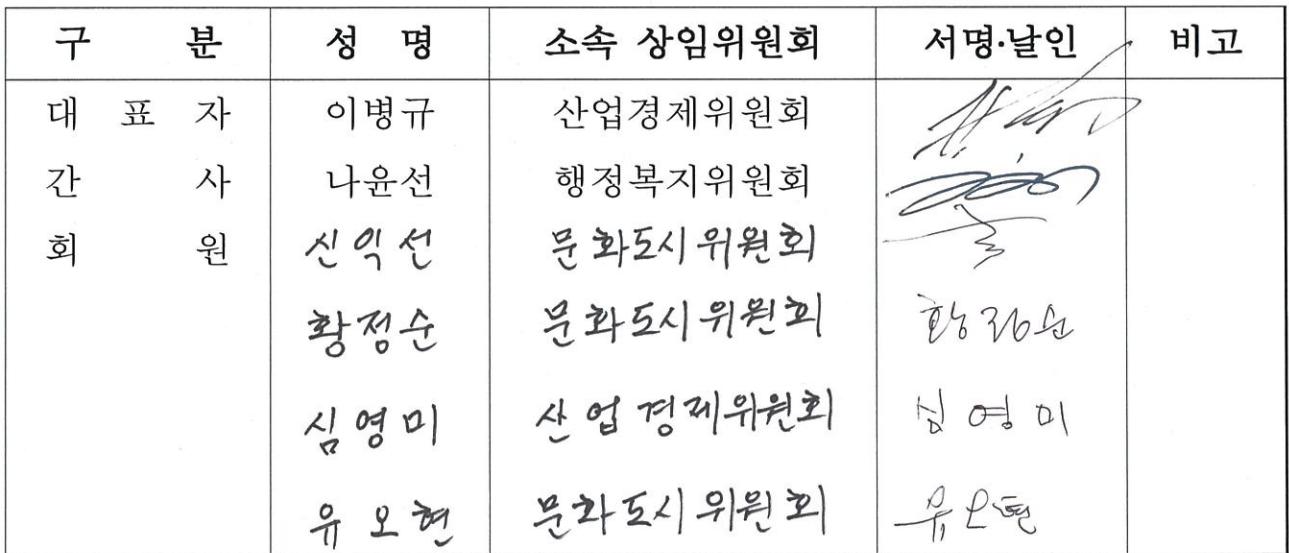 구 분 성 명 소속 상임위원회 서명·날인 비고
대 표 자 이병규 산업경제위원회
간 사 나윤선 행정복지위원회
회 원 신익선 문화도시위원회
황정순 문화도시위원회 황정순
심영미 산업경제위원회 심영미
유오현 문화도시위원회 유오현